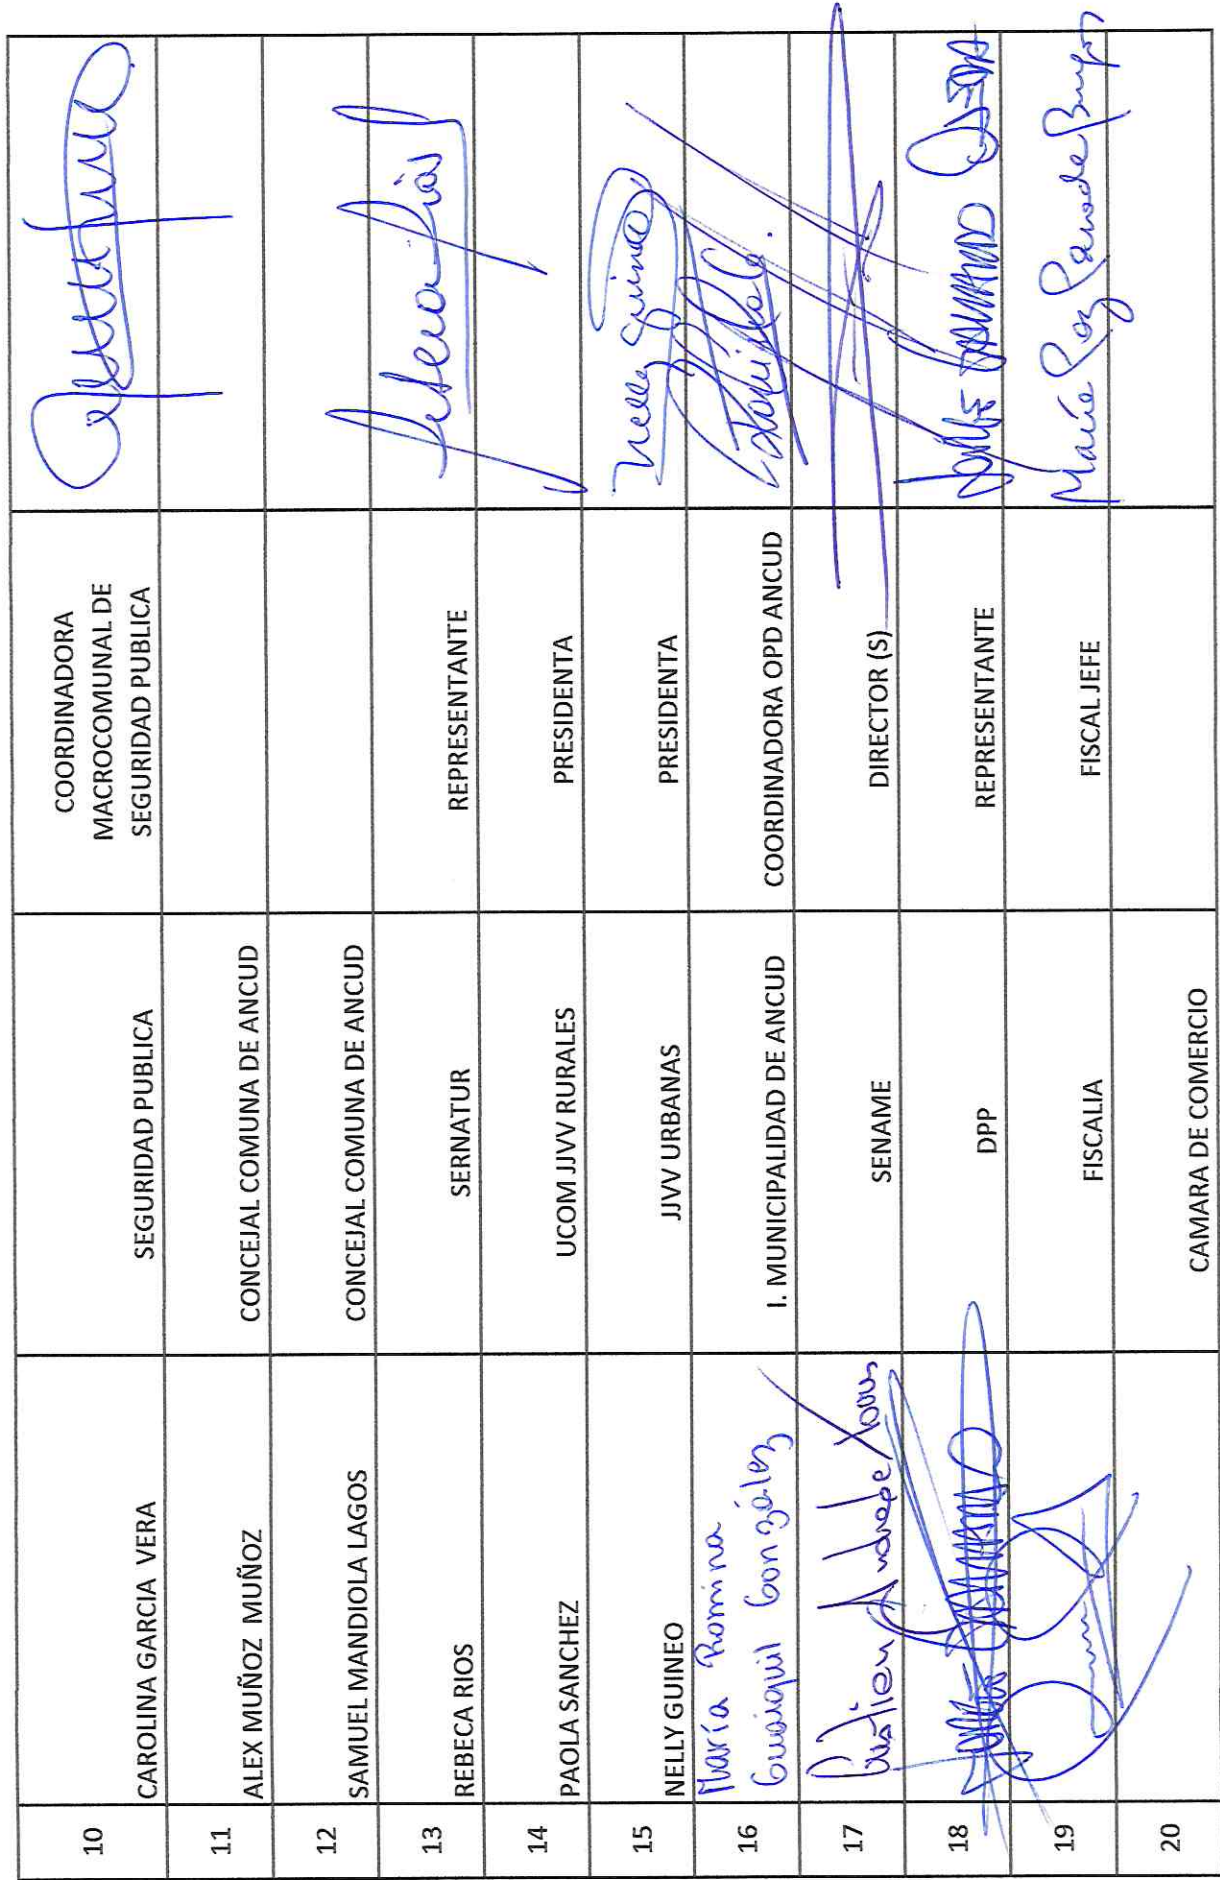 10 CAROLINA GARCIA VERA SEGURIDAD PUBLICA COORDINADORA
MACROCOMUNAL DE
SEGURIDAD PUBLICA
11 ALEX MUÑOZ MUÑOZ CONCEJAL COMUNA DE ANCUD
12 SAMUEL MANDIOLA LAGOS CONCEJAL COMUNA DE ANCUD
13 REBECA RIOS SERNATUR REPRESENTANTE
14 PAOLA SANCHEZ UCOM JJVV RURALES PRESIDENTA
15 NELLY GUINEO JJVV URBANAS PRESIDENTA Nelly Guineo
16 María Romina
Guaiquil González I. MUNICIPALIDAD DE ANCUD COORDINADORA OPD ANCUD
17 Cristian Andrade SENAME DIRECTOR (S)
18 DPP REPRESENTANTE
19 FISCALIA FISCAL JEFE María Paz
20 CAMARA DE COMERCIO